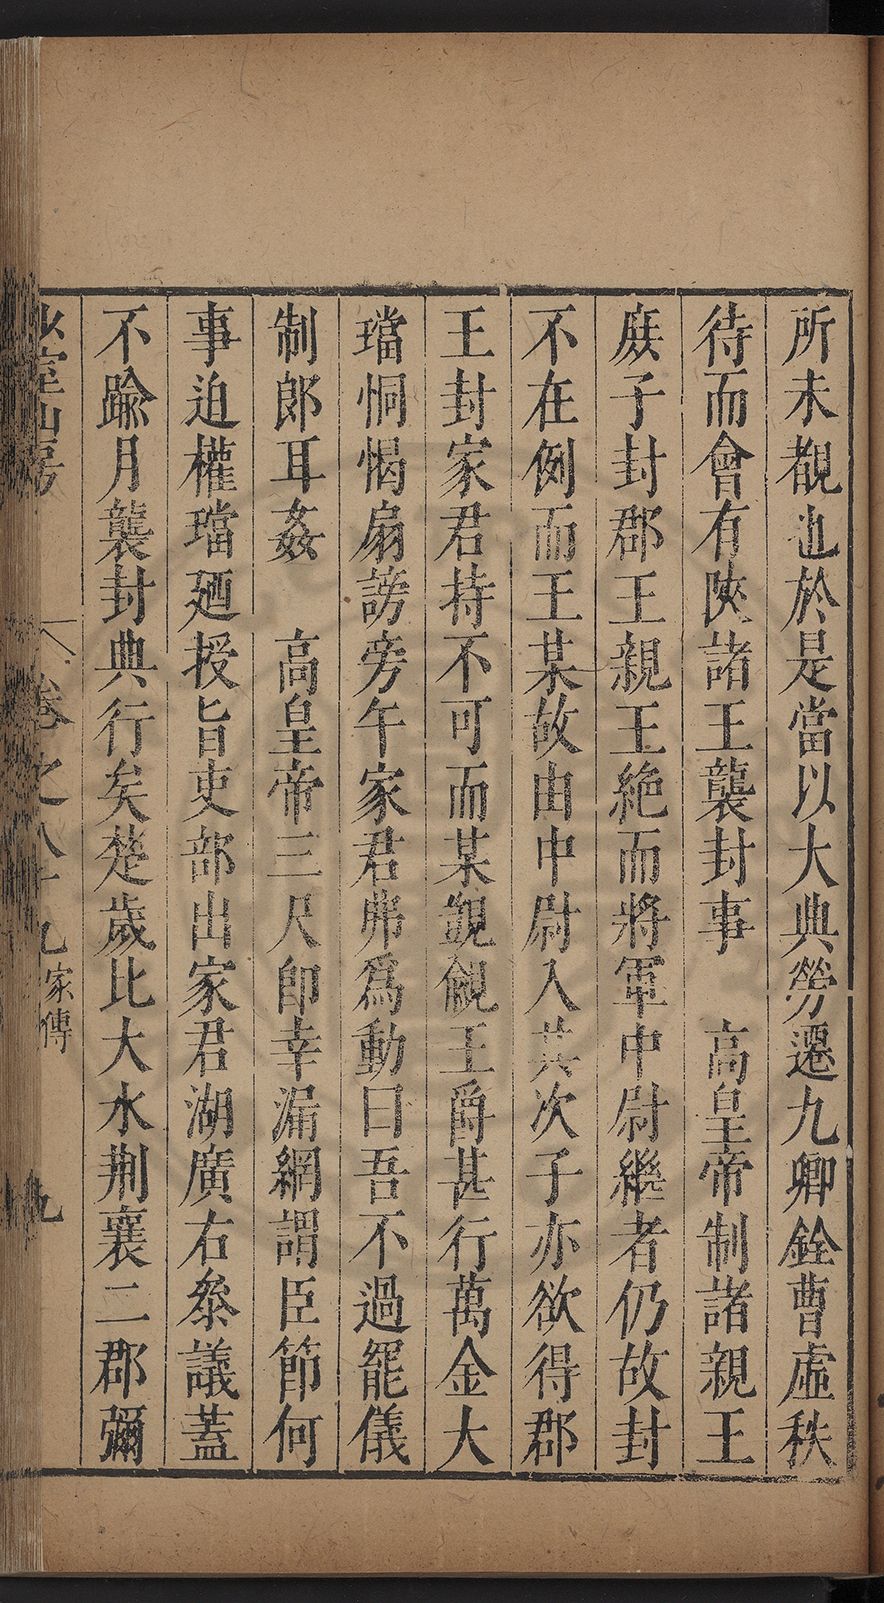 所未覩也於是當以大典勞遷九卿銓曹虛秩
待而會有陜諸王襲封事　高皇帝制諸親王
庻子封郡王親王絶而將軍中尉繼者仍故封
不在例而王某故由中尉入其次子亦欲得郡
王封家君持不可而某覬覦王爵甚行萬金大
璫恫愒扇謗旁午家君弗爲動曰吾不過罷儀
制郎耳姦　高皇帝三尺卽幸漏網謂臣節何
事迫權璫廼授旨吏部出家君湖廣右叅議蓋
不踰月襲封典行矣楚歲比大水荆襄二郡彌
少室山房　卷之八十九家傳　九